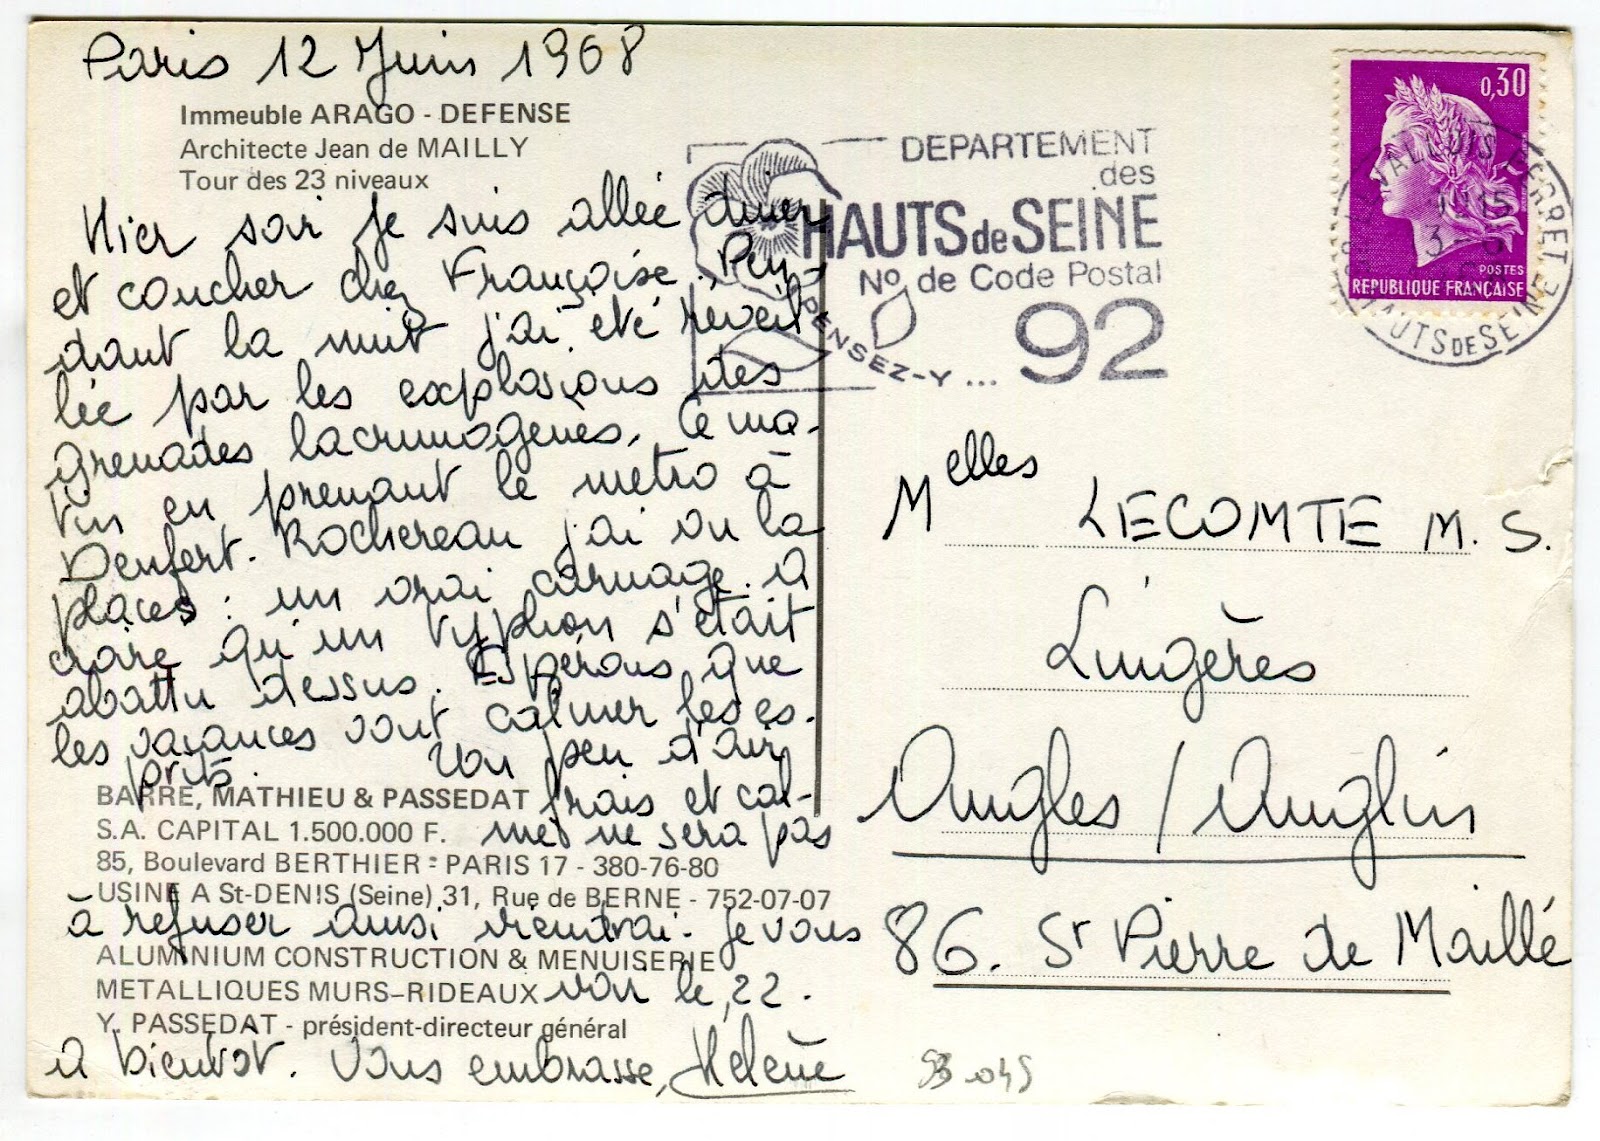 Paris 12 Juin 1968
Immeuble ARAGO - DEFENSE
Architecte Jean de MAILLY
Tour des 23 niveaux
Hier soir je suis allée diner
et coucher chez Françoise. Pen
dant la nuit j'ai été réveil
lée par les explosions des
grenades lacrymogènes. Ce ma-
tin en prenant le metro à
Denfert-Rochereau j'ai vu la
places : un vrai carnage. A
croire qu'un typhon s'était
abattu dessus. Espérons que
les vacances vont calmer les es-
prits. Un peu d'air
BARRE, MATHIEU & PASSEDAT frais et cal-
S.A. CAPITAL 1.500.000 F. me ne sera pas
85, Boulevard BERTHIER - PARIS 17 - 380-76-80
USINE A St-DENIS (Seine) 31, Rue de BERNE - 752-07-07
à refuser aussi viendrai-je vous
ALUMINIUM CONSTRUCTION & MENUISERIE
METALLIQUES MURS-RIDEAUX voir le 22.
Y. PASSEDAT - président-directeur général
A bientôt. Vous embrasse, Helene
DEPARTEMENT
des
HAUTS de SEINE
No de Code Postal
PENSEZ-Y ... 92
0,30
POSTES
REPUBLIQUE FRANÇAISE
LEVALLOIS PERRET
HAUTS DE SEINE
Melles LECOMTE M. S.
Luigères
Angles / Anglin
86. St Pierre de Maillé